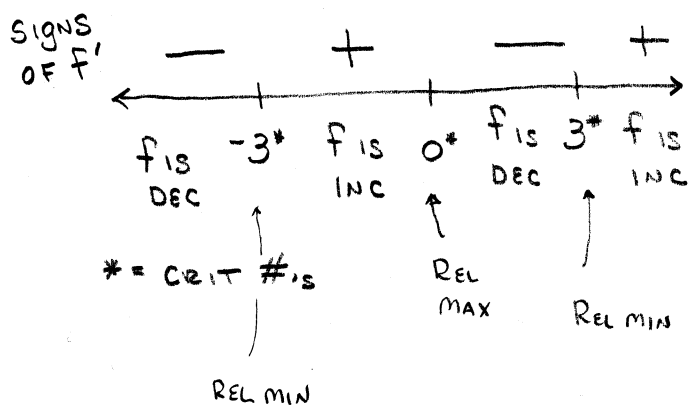 SIGNS OF f'
— + — +
f IS DEC
-3*
f IS INC
0*
f IS DEC
3*
f IS INC
* = CRIT #'s
REL MAX
REL MIN
REL MIN